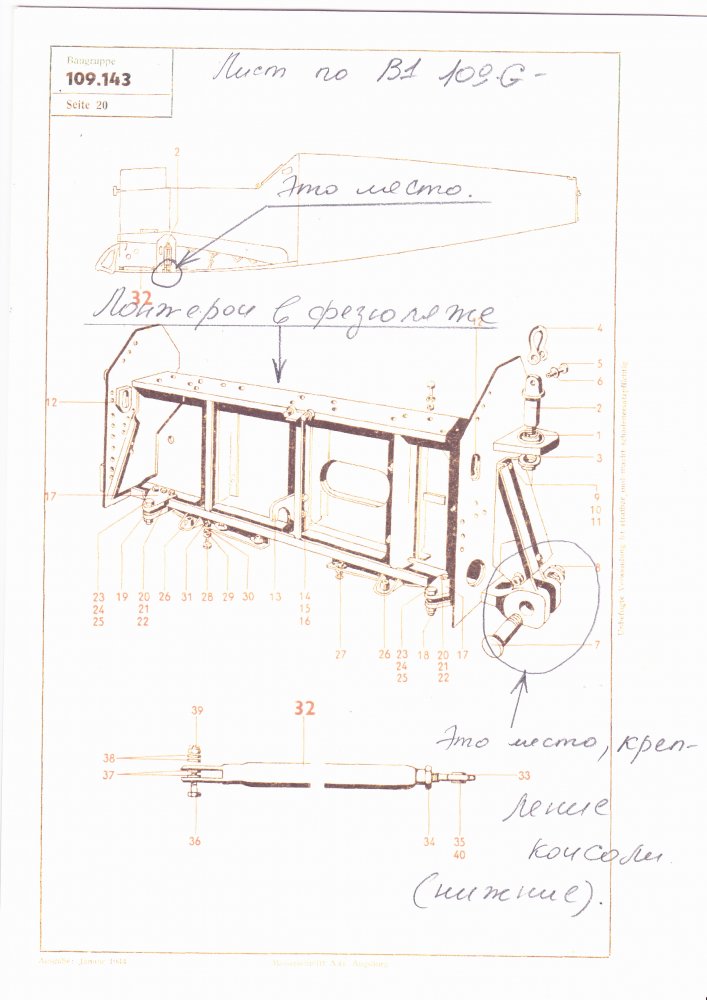 Baugruppe
109.143
Seite 20
Лист по Bf 109.G-
2
Это место.
32
Лонжерон в фезюляже
4
5
6
2
1
3
9
10
11
8
7
12
17
23 19 20 26 31 28 29 30 13 14
24 21 15
25 22 16
27 26 23 18 20 17
24 21
25 22
Это место, креп-
ление
консоли
(нижние).
39
32
38
37
33
36
34 35
40
Ausgabe: Januar 1944
Messerschmitt A.G. Augsburg